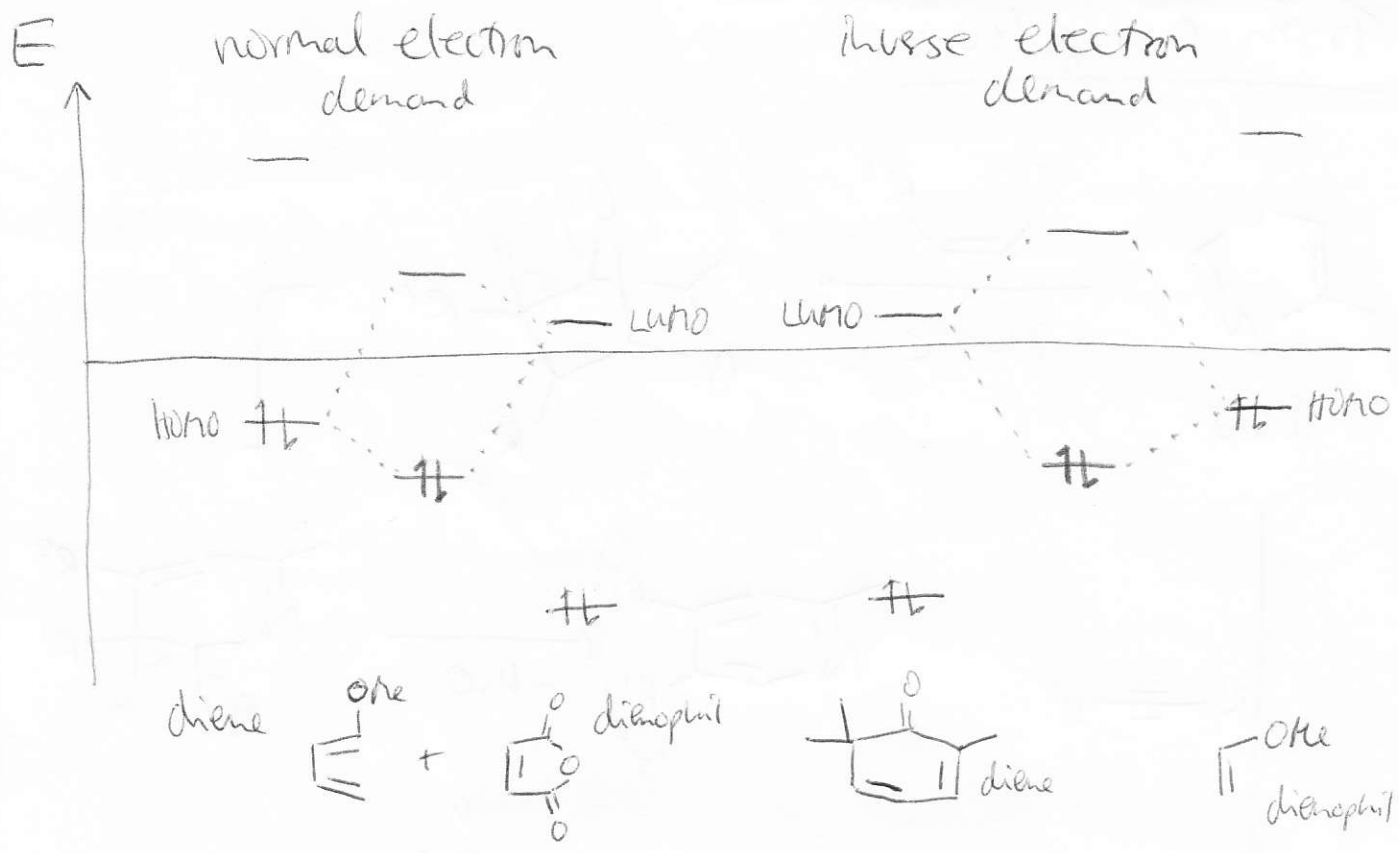 E
normal electron
demand
inverse electron
demand
LUMO
LUMO
HOMO
HOMO
diene
OMe
+
O
O
O
dienophil
O
diene
OMe
dienophil